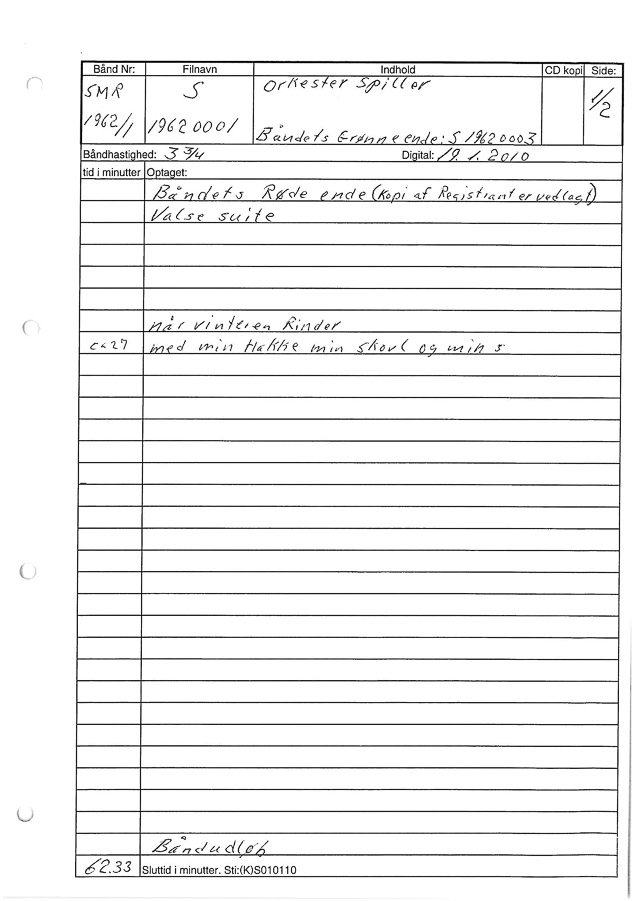 Bånd Nr: Filnavn Indhold CD kopi Side:
SMR S Orkester Spiller 1/2
1962/1 19620001 Båndets Grønne ende: S 19620003
Båndhastighed: 3 3/4 Digital: 19.1.2010
tid i minutter Optaget:
Båndets Røde ende (Kopi af Registrant er vedlagt)
Valse suite
når vinteren Rinder
ca 27 med min Hakke min skovl og min s
Båndudløb
62.33 Sluttid i minutter. Sti:(K)S010110